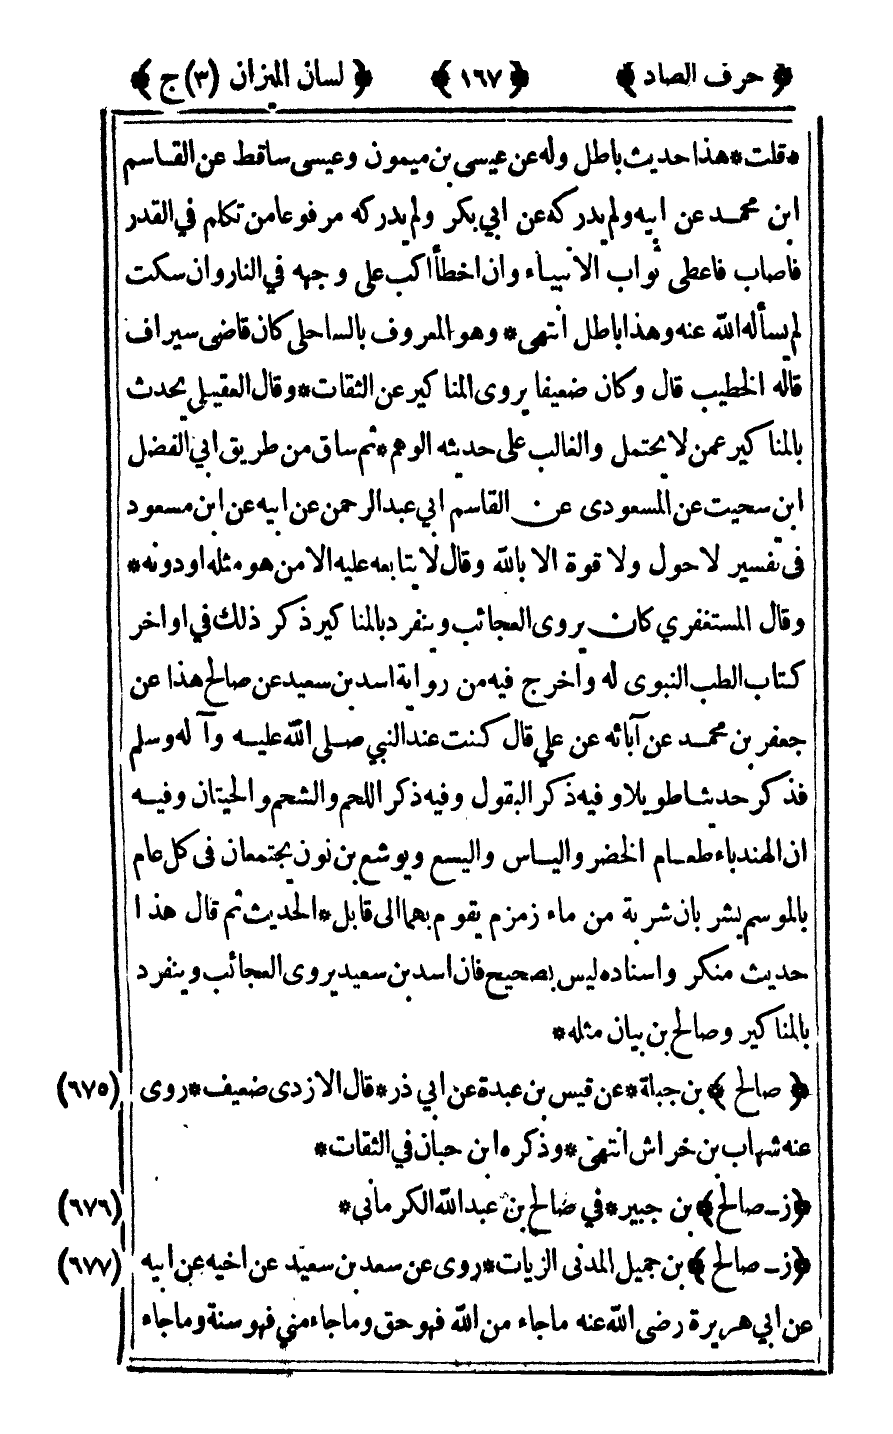 ﴿ حرف الصاد ﴾ ﴿ ١٦٧ ﴾ ﴿ لسان الميزان (٣) ج ﴾
*قلت*هذا حديث باطل وله عن عيسى بن ميمون وعيسى ساقط عن القاسم
ابن محمد عن ابيه ولم يدركه عن ابي بكر ولم يدركه مرفوعا من تكلم في القدر
فاصاب فاعطى ثواب الانبياء وان اخطأ اكب على وجهه في النار وان سكت
لم يسأله الله عنه وهذا باطل انتهى* وهو المعروف بالساحلى كان قاضى سيراف
قاله الخطيب قال وكان ضعيفا يروى المناكير عن الثقات*وقال العقيلي يحدث
بالمناكير عمن لا يحتمل والغالب على حديثه الوهم*ثم ساق من طريق ابي الفضل
ابن سحيت عن المسعودى عن القاسم ابي عبدالرحمن عن ابيه عن ابن مسعود
فى تفسير لا حول ولا قوة الا بالله وقال لا يتابعه عليه الا من هو مثله او دونه*
وقال المستغفري كان يروى العجائب وينفرد بالمناكير ذكر ذلك في اواخر
كتاب الطب النبوى له واخرج فيه من رواية اسد بن سعيد عن صالح هذا عن
جعفر بن محمد عن آبائه عن علي قال كنت عند النبي صلى الله عليه وآله وسلم
فذكر حديثا طويلا وفيه ذكر البقول وفيه ذكر اللحم والشحم والحيتان وفيه
ان الهندباء طعام الخضر والياس واليسع ويوشع بن نون يجتمعان فى كل عام
بالموسم يشربان شربة من ماء زمزم يقوم بهما الى قابل*الحديث ثم قال هذا
حديث منكر واسناده ليس بصحيح فان اسد بن سعيد يروى العجائب وينفرد
بالمناكير وصالح بن بيان مثله*
﴿ صالح ﴾ بن جبلة*عن قيس بن عبدة عن ابي ذر*قال الازدى ضعيف*روى (٦٧٥)
عنه شهاب بن خراش انتهى*وذكره ابن حبان في الثقات*
﴿ز- صالح﴾ بن جبير*في صالح بن عبدالله الكرمانى* (٦٧٦)
﴿ز- صالح ﴾ بن جميل المدنى الزيات*روى عن سعد بن سعيد عن اخيه عن ابيه (٦٧٧)
عن ابي هريرة رضى الله عنه ما جاء من الله فهو حق وما جاء مني فهو سنة وما جاء